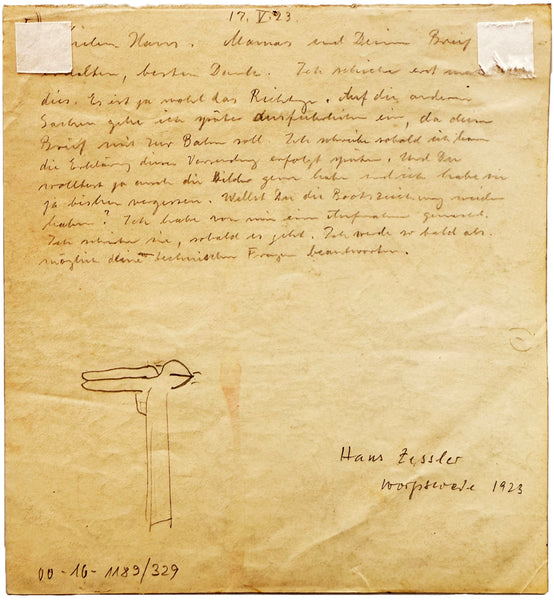 17. V. 23
Hans. Mamas und Deinen Brief
erhalten, besten Dank. Ich schicke erst mal
dies. Es ist ja wohl das Richtige. Auf die anderen
Sachen gehe ich später ausführlicher ein, da dieser
Brief mit zur Bahn soll. Ich schreibe sobald ich kann
die Erklärung dieser Versendung erfolgt später. Und Du
wolltest ja auch die Bilder gern haben und ich habe sie
ja bisher vergessen. Willst Du die Bootszeichnung wieder
haben? Ich habe von mir eine Aufnahme gemacht.
Ich schicke sie, sobald es geht. Ich werde so bald als
möglich deine technischen Fragen beantworten.
Hans Zessler
Worpswede 1923
00-16-1189/329